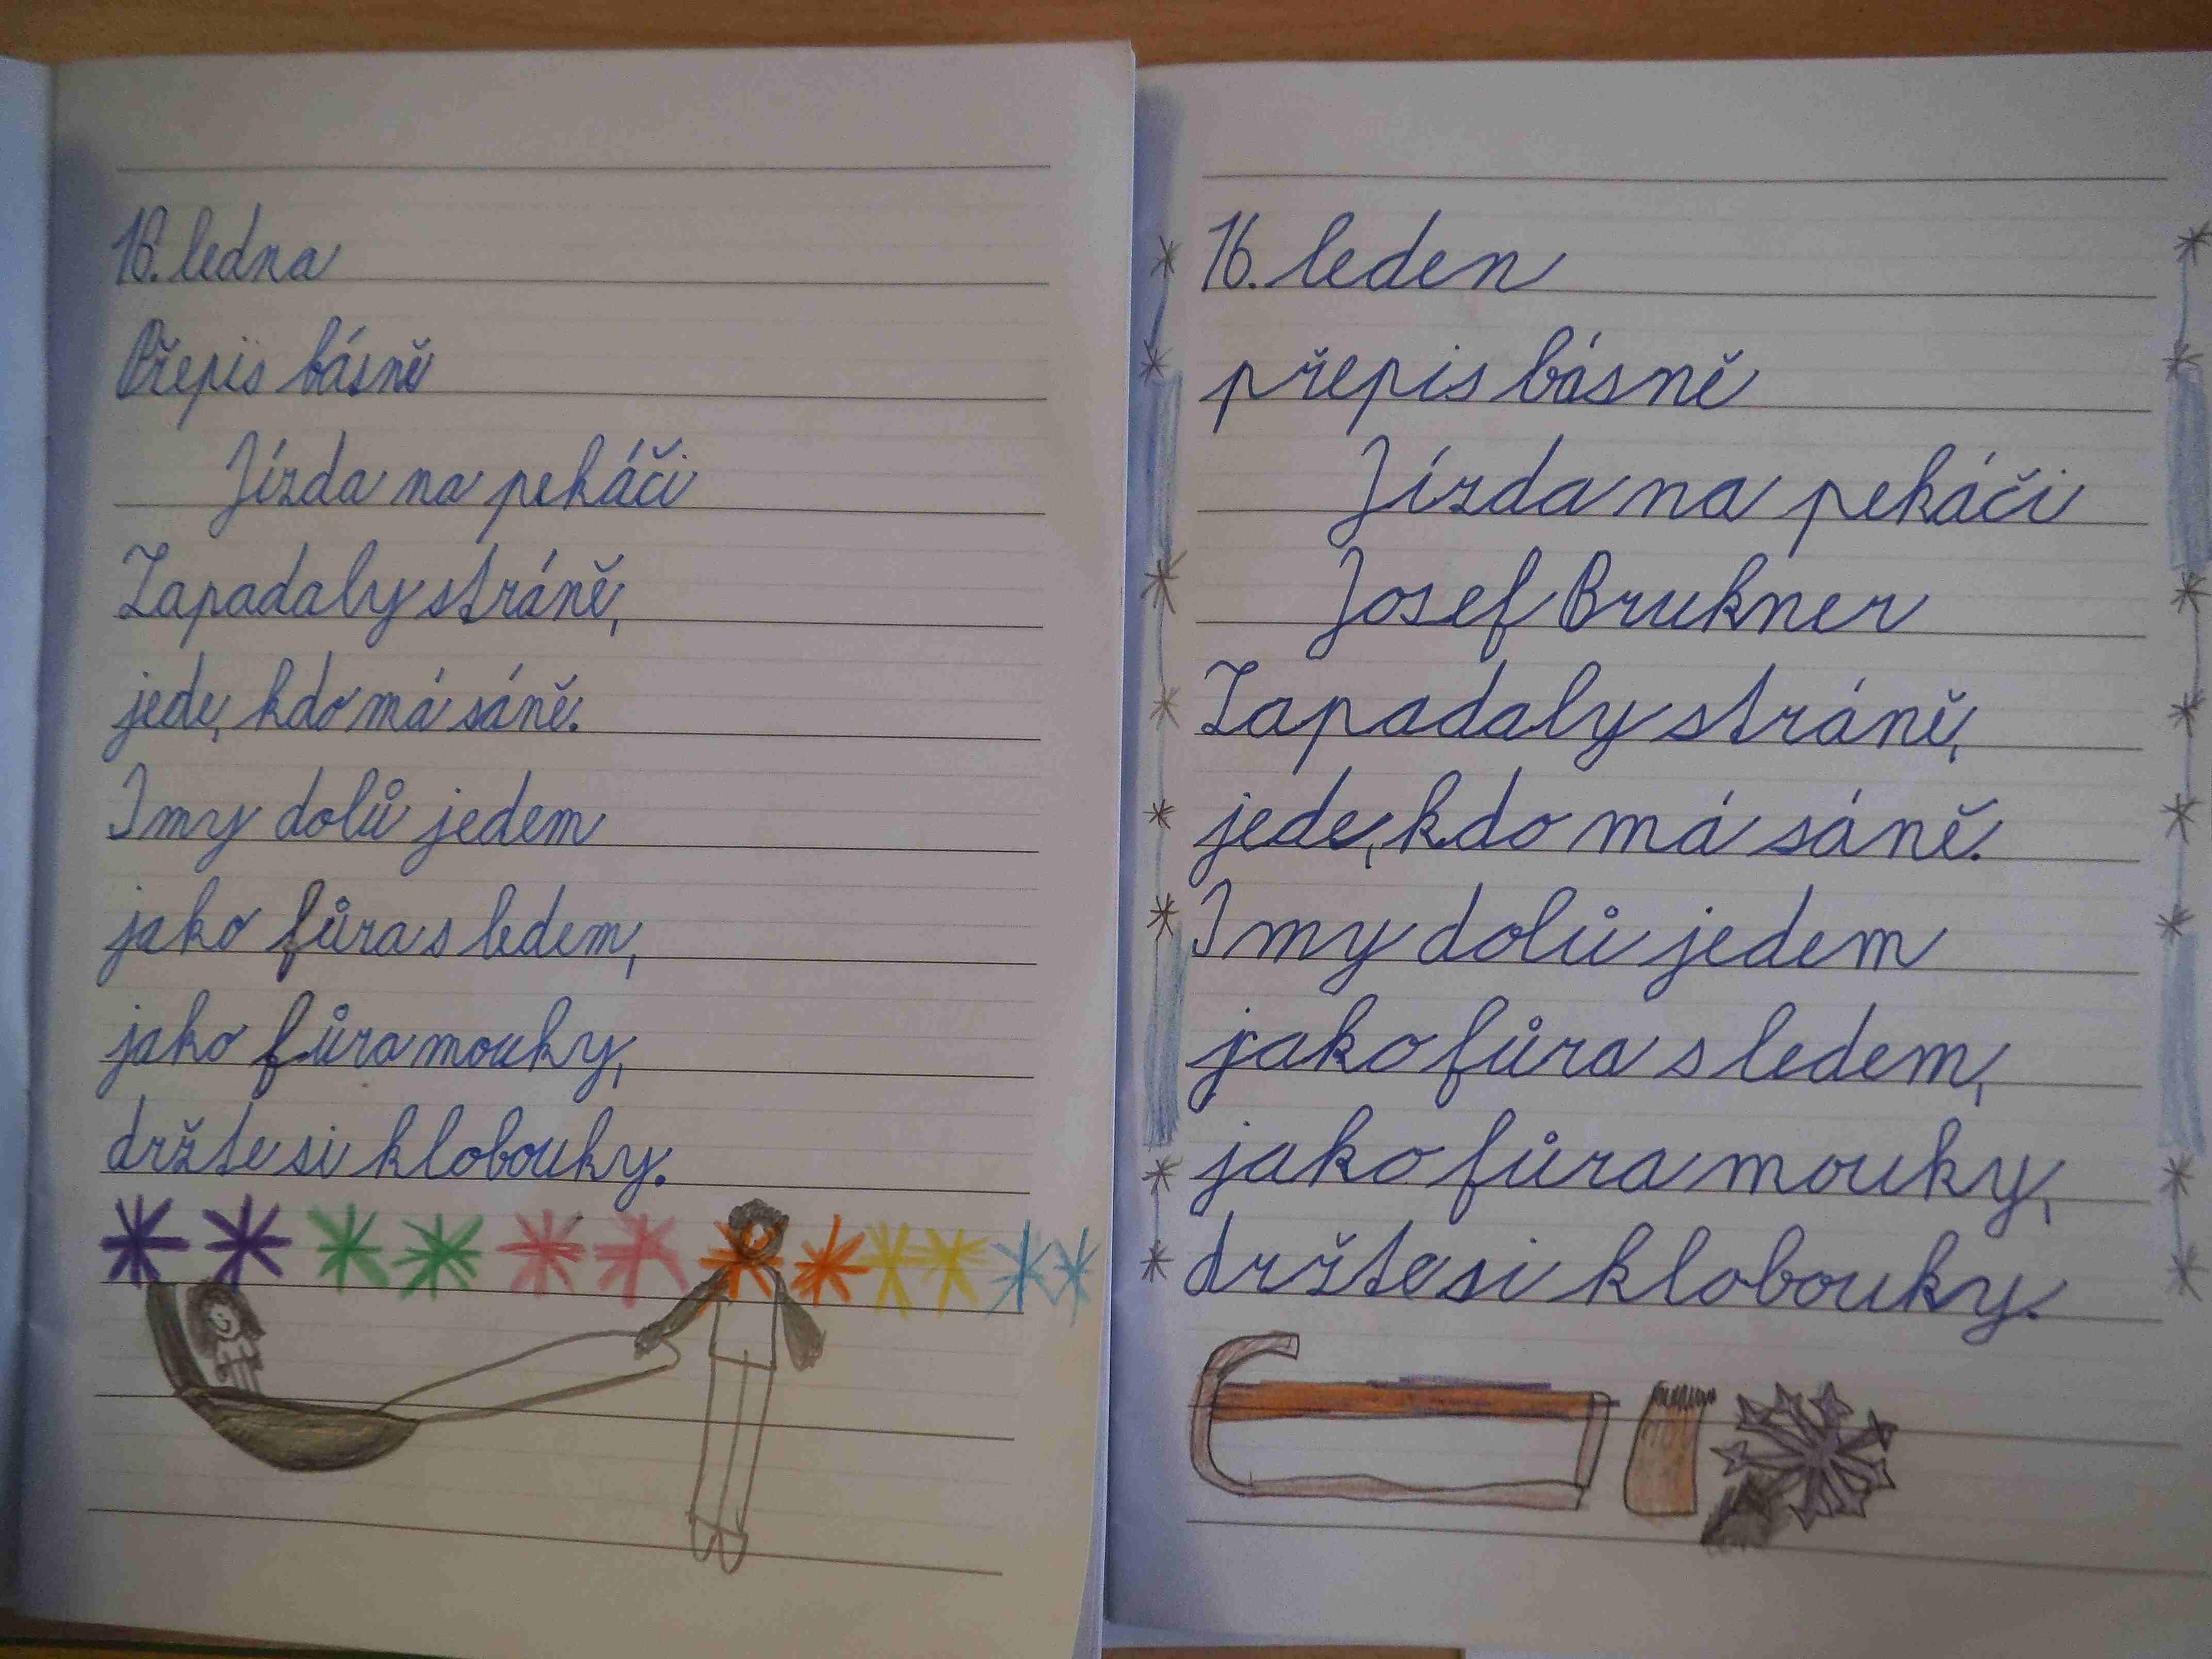 16. ledna
Přepis básně
Jízda na pekáči
Zapadaly stráně,
jede, kdo má sáně.
I my dolů jedem
jako fůra s ledem,
jako fůra mouky,
držte si klobouky.
16. leden
přepis básně
Jízda na pekáči
Josef Brukner
Zapadaly stráně,
jede, kdo má sáně.
I my dolů jedem
jako fůra s ledem,
jako fůra mouky,
držte si klobouky.